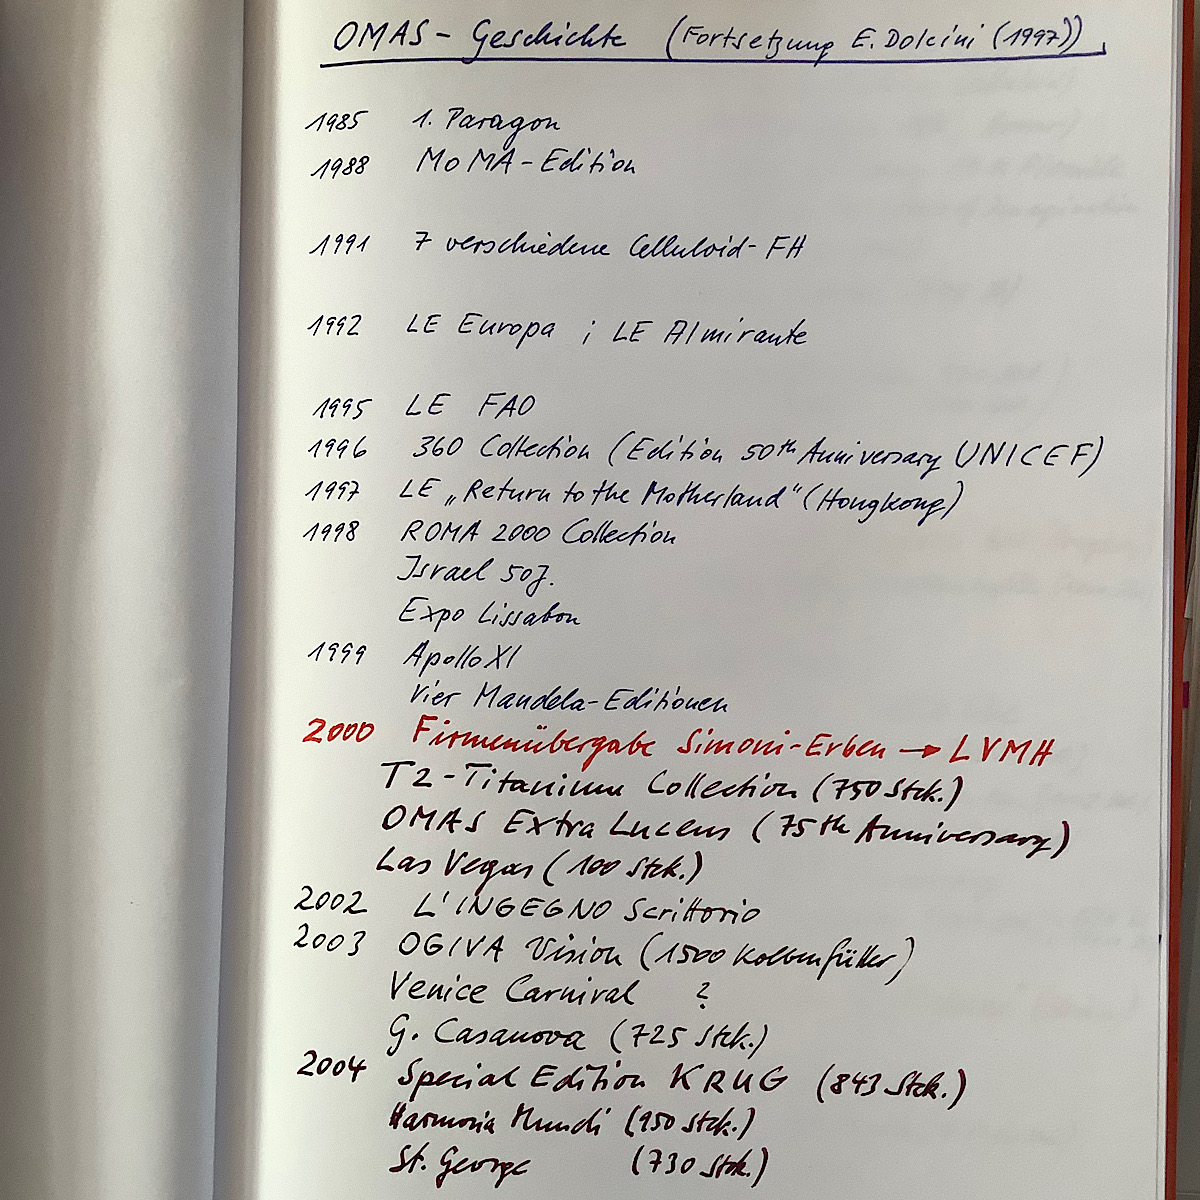 OMAS - Geschichte (Fortsetzung E. Dolcini (1997))
1985 1. Paragon
1988 MoMA-Edition
1991 7 verschiedene Celluloid-FH
1992 LE Europa ; LE Almirante
1995 LE FAO
1996 360 Collection (Edition 50th Anniversary UNICEF)
1997 LE „Return to the Motherland“ (Hongkong)
1998 ROMA 2000 Collection
Israel 50J.
Expo Lissabon
1999 Apollo XI
Vier Mandela-Editionen
2000 Firmenübergabe Simoni-Erben → LVMH
T2-Titanium Collection (750 Stck.)
OMAS Extra Lucens (75th Anniversary)
Las Vegas (100 Stck.)
2002 L'INGEGNO Scrittorio
2003 OGIVA Vision (1500 Kolbenfüller)
Venice Carnival ?
G. Casanova (725 Stck.)
2004 Special Edition KRUG (843 Stck.)
Harmonia Mundi (950 Stck.)
St. George (730 Stck.)